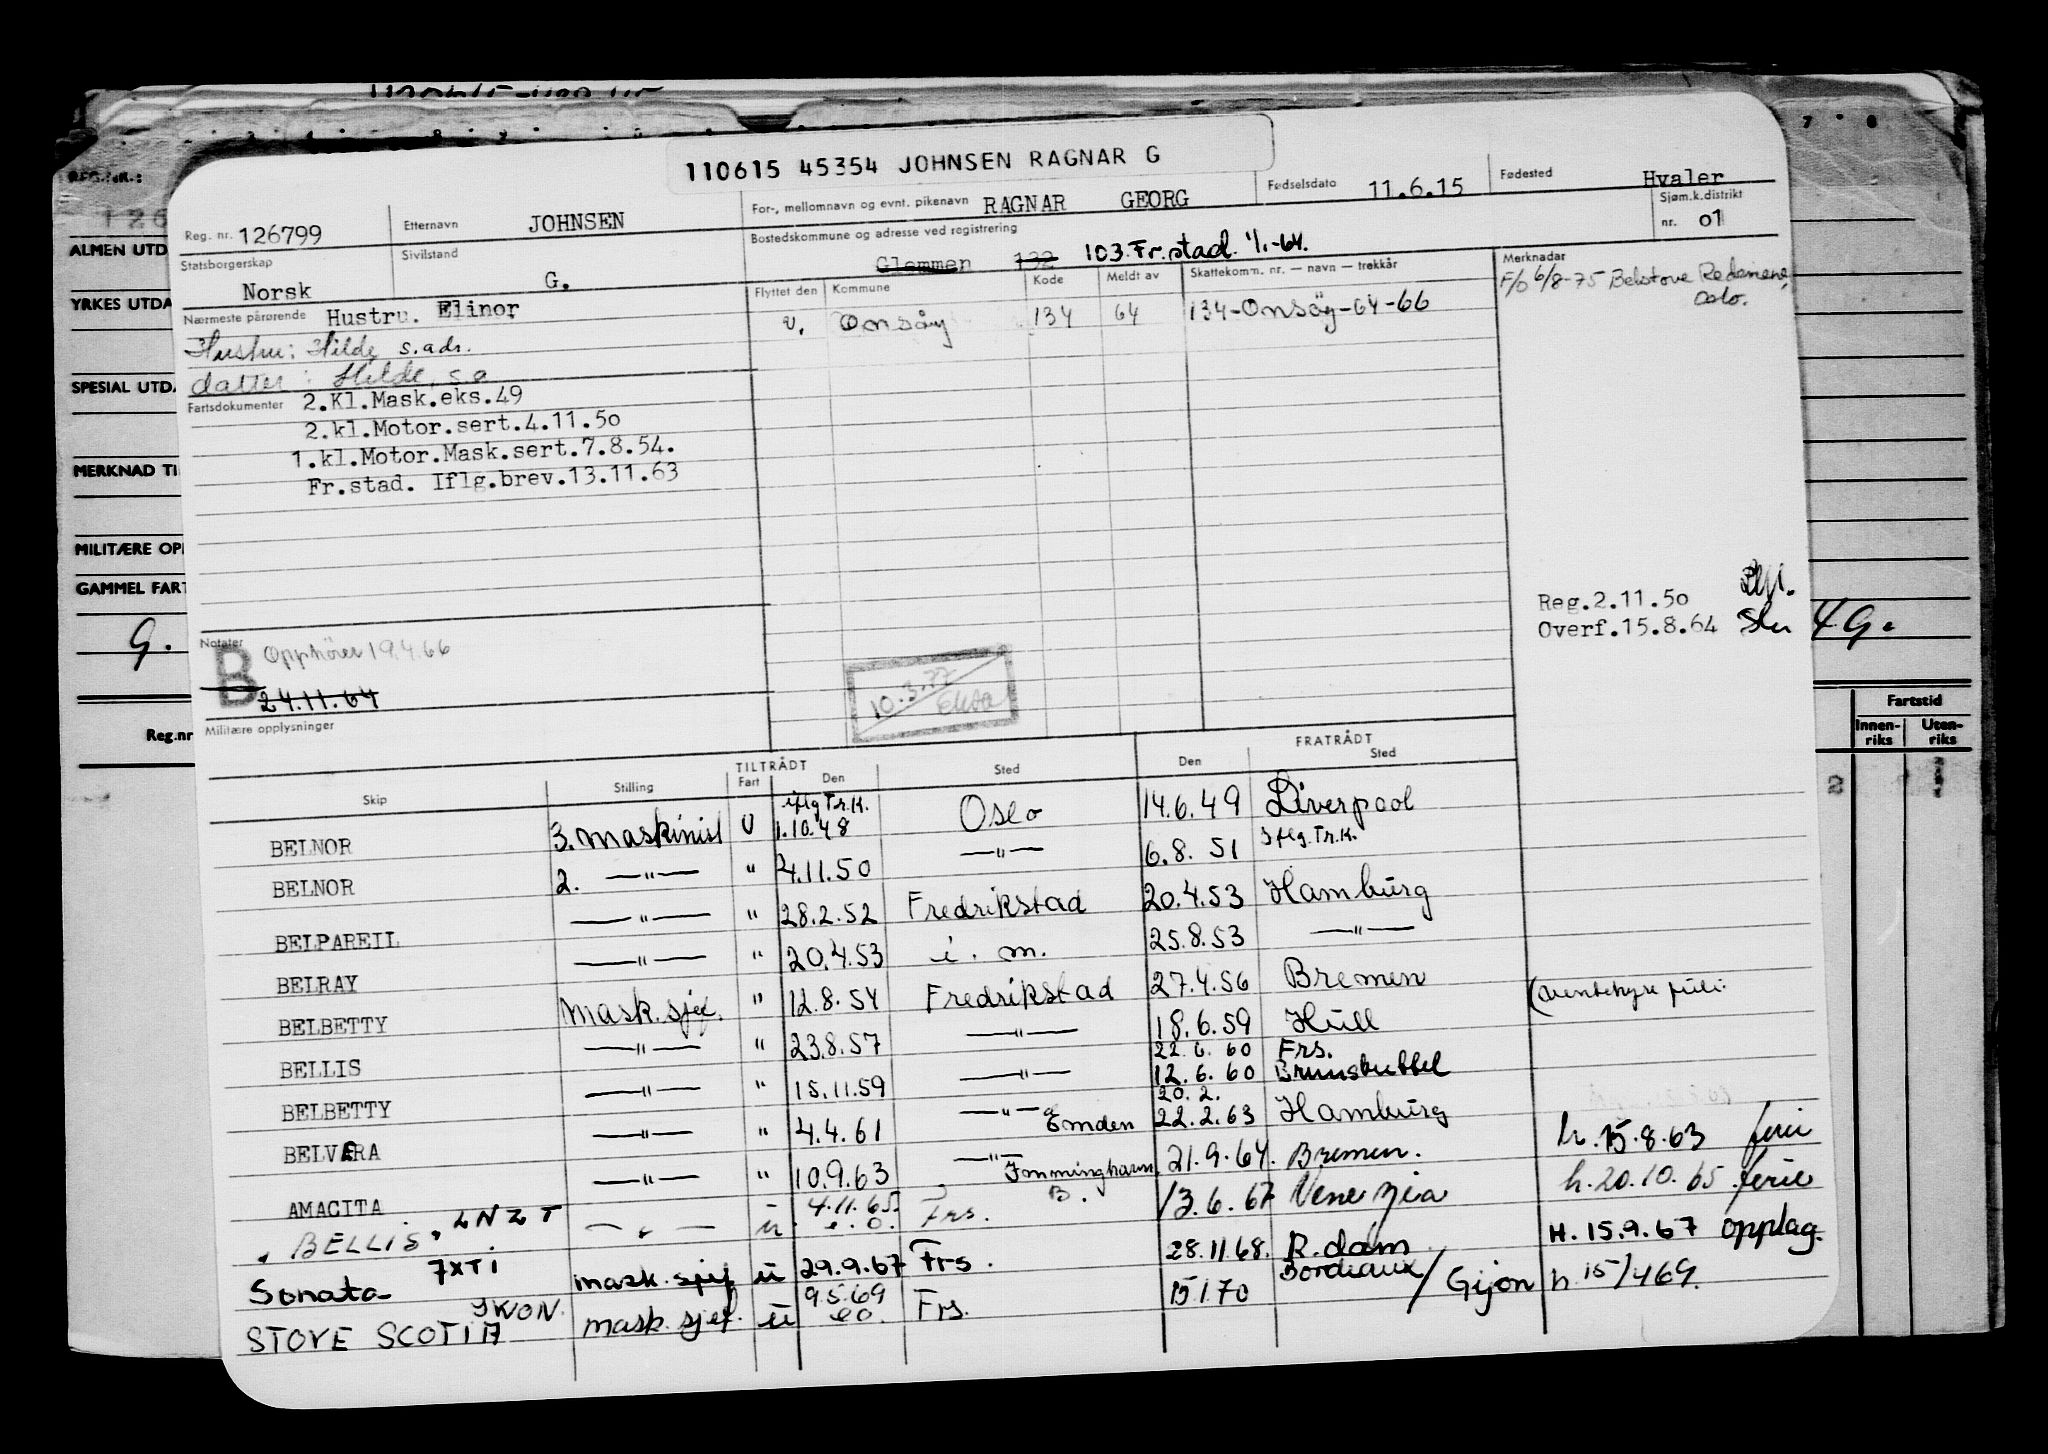 110615 45354 JOHNSEN RAGNAR G
Reg. nr. 126799 Etternavn JOHNSEN For-, mellomnavn og evnt. pikenavn RAGNAR GEORG Fødselsdato 11.6.15 Fødested Hvaler
Statsborgerskap Norsk Sivilstand G. Bostedskommune og adresse ved registrering Glemmen 132 103 Fr.stad. 1/1-64. Sjøm.k.distrikt nr. 01
Nærmeste pårørende Hustru. Elinor
Hustru: Hilde s.adr.
datter: Hilde, s.a
Flyttet den Kommune Kode Meldt av Skattekomm. nr. — navn — trekkår
U. Onsøy 134 64 134-Onsöy-64-66
Merknader
F/b 6/8-75 Belstove Rederiene,
Oslo.
Fartsdokumenter 2.Kl.Mask.eks.49
2.kl.Motor.sert.4.11.50
1.kl.Motor.Mask.sert.7.8.54.
Fr.stad. Iflg.brev.13.11.63
Reg.2.11.50
Overf.15.8.64
Notater
B Opphörer 19.4.66
24.11.64
10.3.77
Militære opplysninger
TILTRÅDT FRATRÅDT
Skip Stilling Fart Den Sted Den Sted
BELNOR 3. Maskinist U iflg Tr.K. 1.10.48 Oslo 14.6.49 Liverpool
BELNOR 2. —"— " 4.11.50 —"— 6.8.51 Iflg.Tr.K.
BELPAREIL —"— " 28.2.52 Fredrikstad 20.4.53 Hamburg
BELRAY —"— " 20.4.53 i. m. 25.8.53 —"—
BELBETTY Mask.sjef. " 12.8.54 Fredrikstad 27.4.56 Bremen
BELLIS —"— " 23.8.57 —"— 18.6.59 Hull
BELBETTY —"— " 15.11.59 —"— 22.6.60 Frs. 12.6.60 Brunsbuttel
BELVERA —"— " 4.4.61 —"— Emden 20.2. 22.2.63 Hamburg
AMACITA —"— " 10.9.63 —"— Immingham 21.9.64. Bremen. h. 15.8.63 ferie
"BELLIS" LNZT — " — u 4.11.65. e.o. Frs. B. 13.6.67 Venezia h.20.10.65 ferie
Sonata 7XTI mask.sjef u 29.9.67 Frs. 28.11.68. R.dam H. 15.9.67 opplag.
STOVE SCOTIA JWON. mask.sjef. u 9.5.69 eo. Frs. 15.1.70 Bordeaux/Gijon h 15/4 69.
REG.NR.:
126
ALMEN UTD
YRKES UTDA
SPESIAL UTDA
MERKNAD TI
MILITÆRE OP
GAMMEL FART
G. 4G.
Reg.nr
Fartstid
Innen-riks Uten-riks